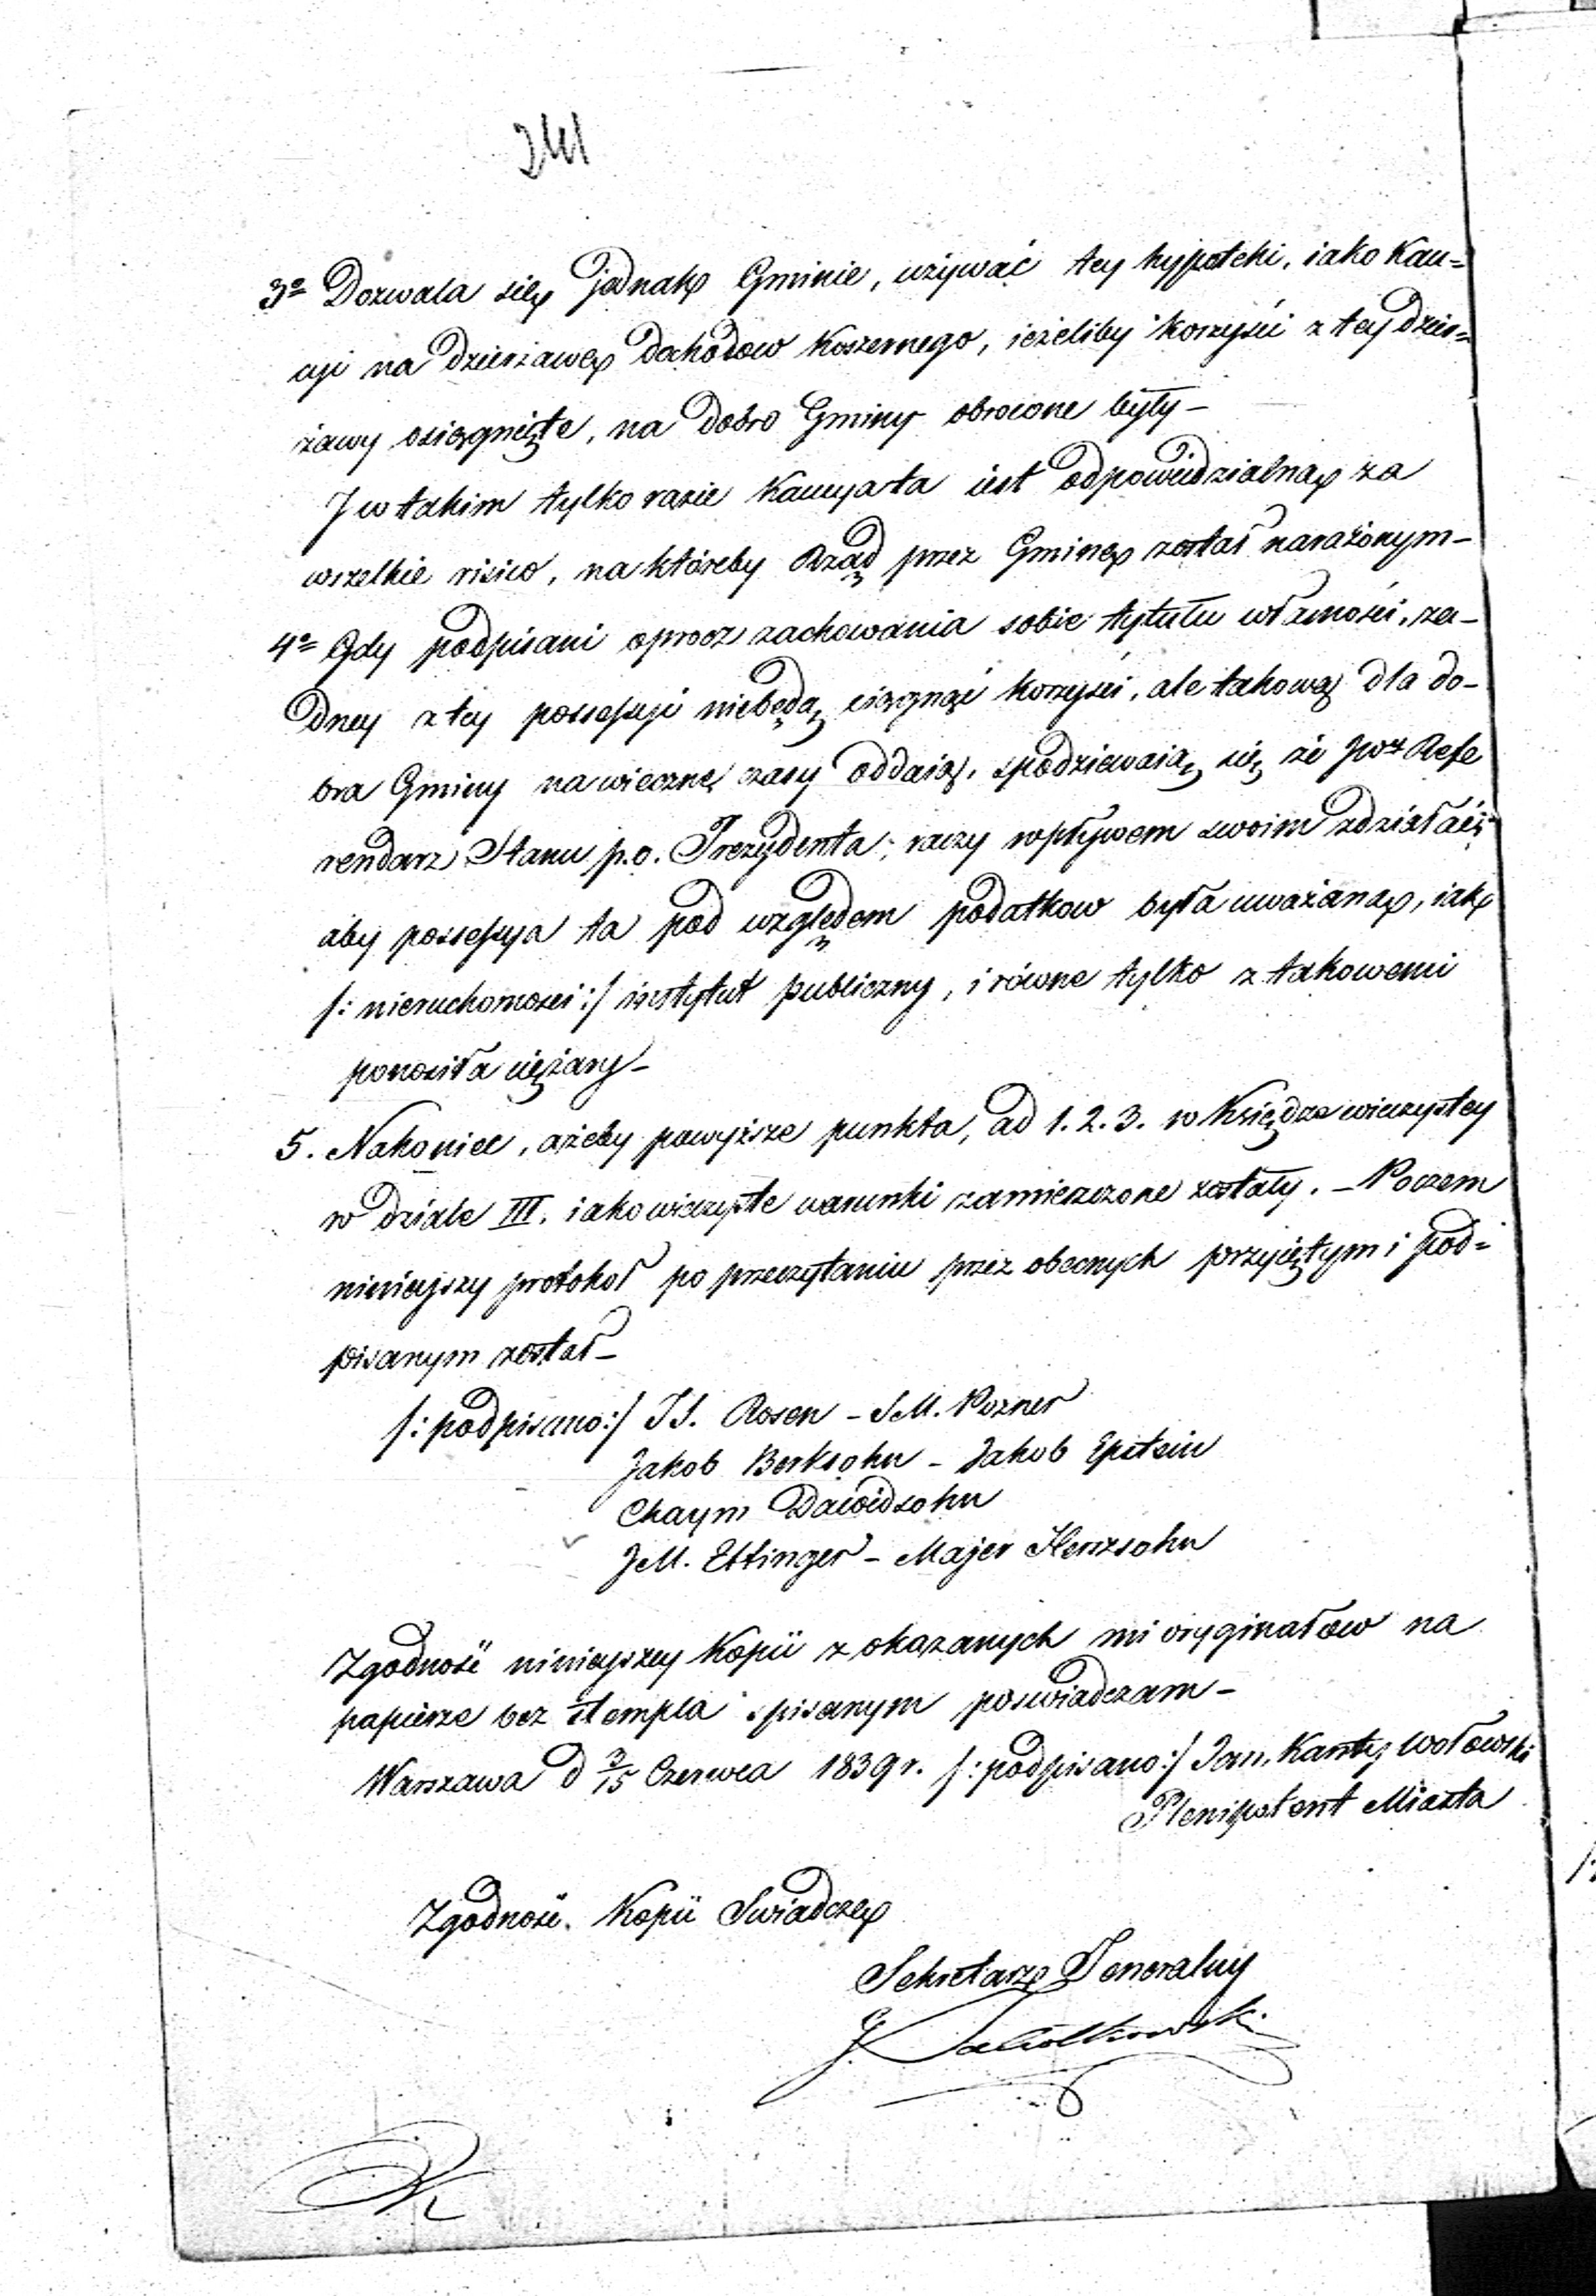 241
3º Dozwala się jednak Gminie, używać tey hypoteki, iako Kau=
cyi na dzierżawę dochodow Koszernego, ieżeliby korzyści z tey dzier=
żawy osiągnięte, na dobro Gminy obrocone były –
J w takim tylko razie Kaucya ta iest odpowiedzialną za
wszelkie risico, na któreby Rząd przez Gminę został narażonym –
4º Gdy podpisani oprocz zachowania sobie tytułu własności, ża-
dney z tey possessyi niebędą ciągnąć korzyści, ale takową dla do-
bra Gminy na wieczne czasy oddaią, spodziewaią się że JWny Refe
rendarz Stanu p.o. Prezydenta, raczy wpływem swoim zdziałać,
aby possessya ta pod względem podatkow była uważaną, iak
/: nieruchomości :/ instytut publiczny, i równe tylko z takowemi
ponosiła ciężary –
5. Nakoniec, ażeby powyższe punkta, ad 1. 2. 3. w Księdze wieczystey
w dziale III. iako wieczyste warunki zamieszczone zostały. – Poczem
ninieyszy protokoł po przeczytaniu przez obecnych przyiętym i pod=
pisanym został –
/: podpisano :/ J S. Rosen – S M. Pozner
Jakob Berksohn – Jakob Epstein
Chaym Dawidsohn
J M. Ettinger – Majer Henrsohn
Zgodność ninieyszey Kopii z okazanych mi oryginałow na
papierze bez stempla spisanym poswiadczam –
Warszawa d 3/15 Czerwca 1839 r. /: podpisano :/ Jan, Kanty, Wołowski
Plenipotent Miasta
Zgodność Kopii Swiadczę
Sekretarz Jeneralny